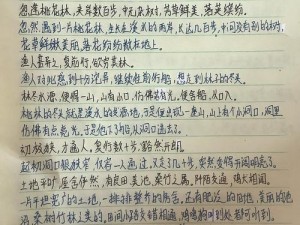 忽逢桃花林，夹岸数百步，中无杂树，芳草鲜美，落英缤纷
忽然遇到一片桃花林，生长在溪水的两岸，长达几百步，中间没有别的树，
花草鲜嫩美丽，落花纷纷散在地上。
渔人甚异之，复前行，欲穷其林。
渔人对此感到十分诧异，继续往前行船，想走到林子的尽头
林尽水源，便得一山，山有小口，仿佛若有光，便舍船，从口入
桃林的尽头就是溪水的发源地，于是便出现一座山，山上有个小洞口，洞里
仿佛有点亮光，于是他下了船，从洞口进去了。
初极狭，才通人，复行数十步，豁然开朗
起初洞口很狭窄，仅容一人通过，又走了几十步，突然变得开阔明亮了。
土地平旷，屋舍俨然，有良田美池，桑竹之属，阡陌交通，鸡犬相闻。
一片平坦宽广的土地，一排排整齐的房舍，还有肥沃的田地，美丽的池
沼，桑树竹林之类的，田间小路交错相通，鸡鸣狗叫到处都可听到。